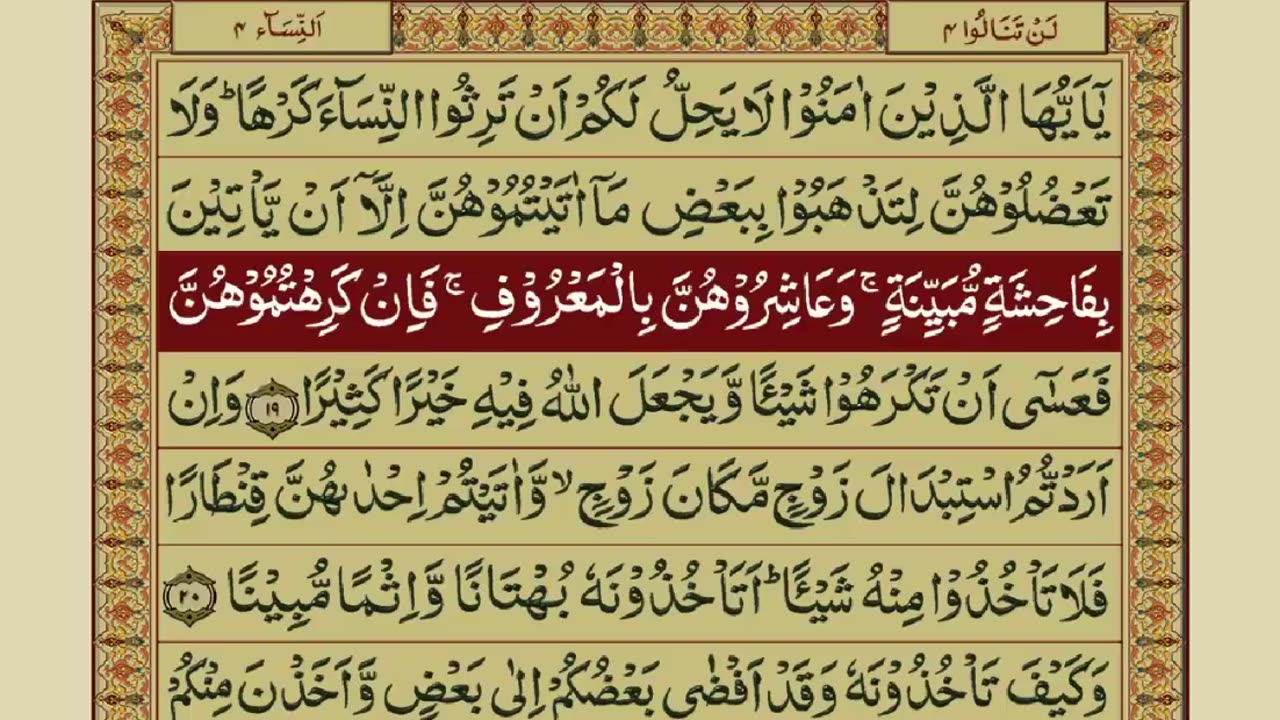 لَنْ تَنَالُوا ۴
اَلنِّسَآء ۴
يٰٓاَيُّهَا الَّذِيْنَ اٰمَنُوْا لَا يَحِلُّ لَكُمْ اَنْ تَرِثُوا النِّسَآءَ كَرْهًا ؕ وَلَا
تَعْضُلُوْهُنَّ لِتَذْهَبُوْا بِبَعْضِ مَآ اٰتَيْتُمُوْهُنَّ اِلَّآ اَنْ يَّاْتِيْنَ
بِفَاحِشَةٍ مُّبَيِّنَةٍ ۚ وَعَاشِرُوْهُنَّ بِالْمَعْرُوْفِ ۚ فَاِنْ كَرِهْتُمُوْهُنَّ
فَعَسٰٓى اَنْ تَكْرَهُوْا شَيْـًٔا وَّيَجْعَلَ اللّٰهُ فِيْهِ خَيْرًا كَثِيْرًا ۱۹ وَاِنْ
اَرَدْتُّمُ اسْتِبْدَالَ زَوْجٍ مَّكَانَ زَوْجٍ ۙ وَّاٰتَيْتُمْ اِحْدٰىهُنَّ قِنْطَارًا
فَلَا تَاْخُذُوْا مِنْهُ شَيْـًٔا ؕ اَتَاْخُذُوْنَهٗ بُهْتَانًا وَّاِثْمًا مُّبِيْنًا ۲۰
وَكَيْفَ تَاْخُذُوْنَهٗ وَقَدْ اَفْضٰى بَعْضُكُمْ اِلٰى بَعْضٍ وَّاَخَذْنَ مِنْكُمْ